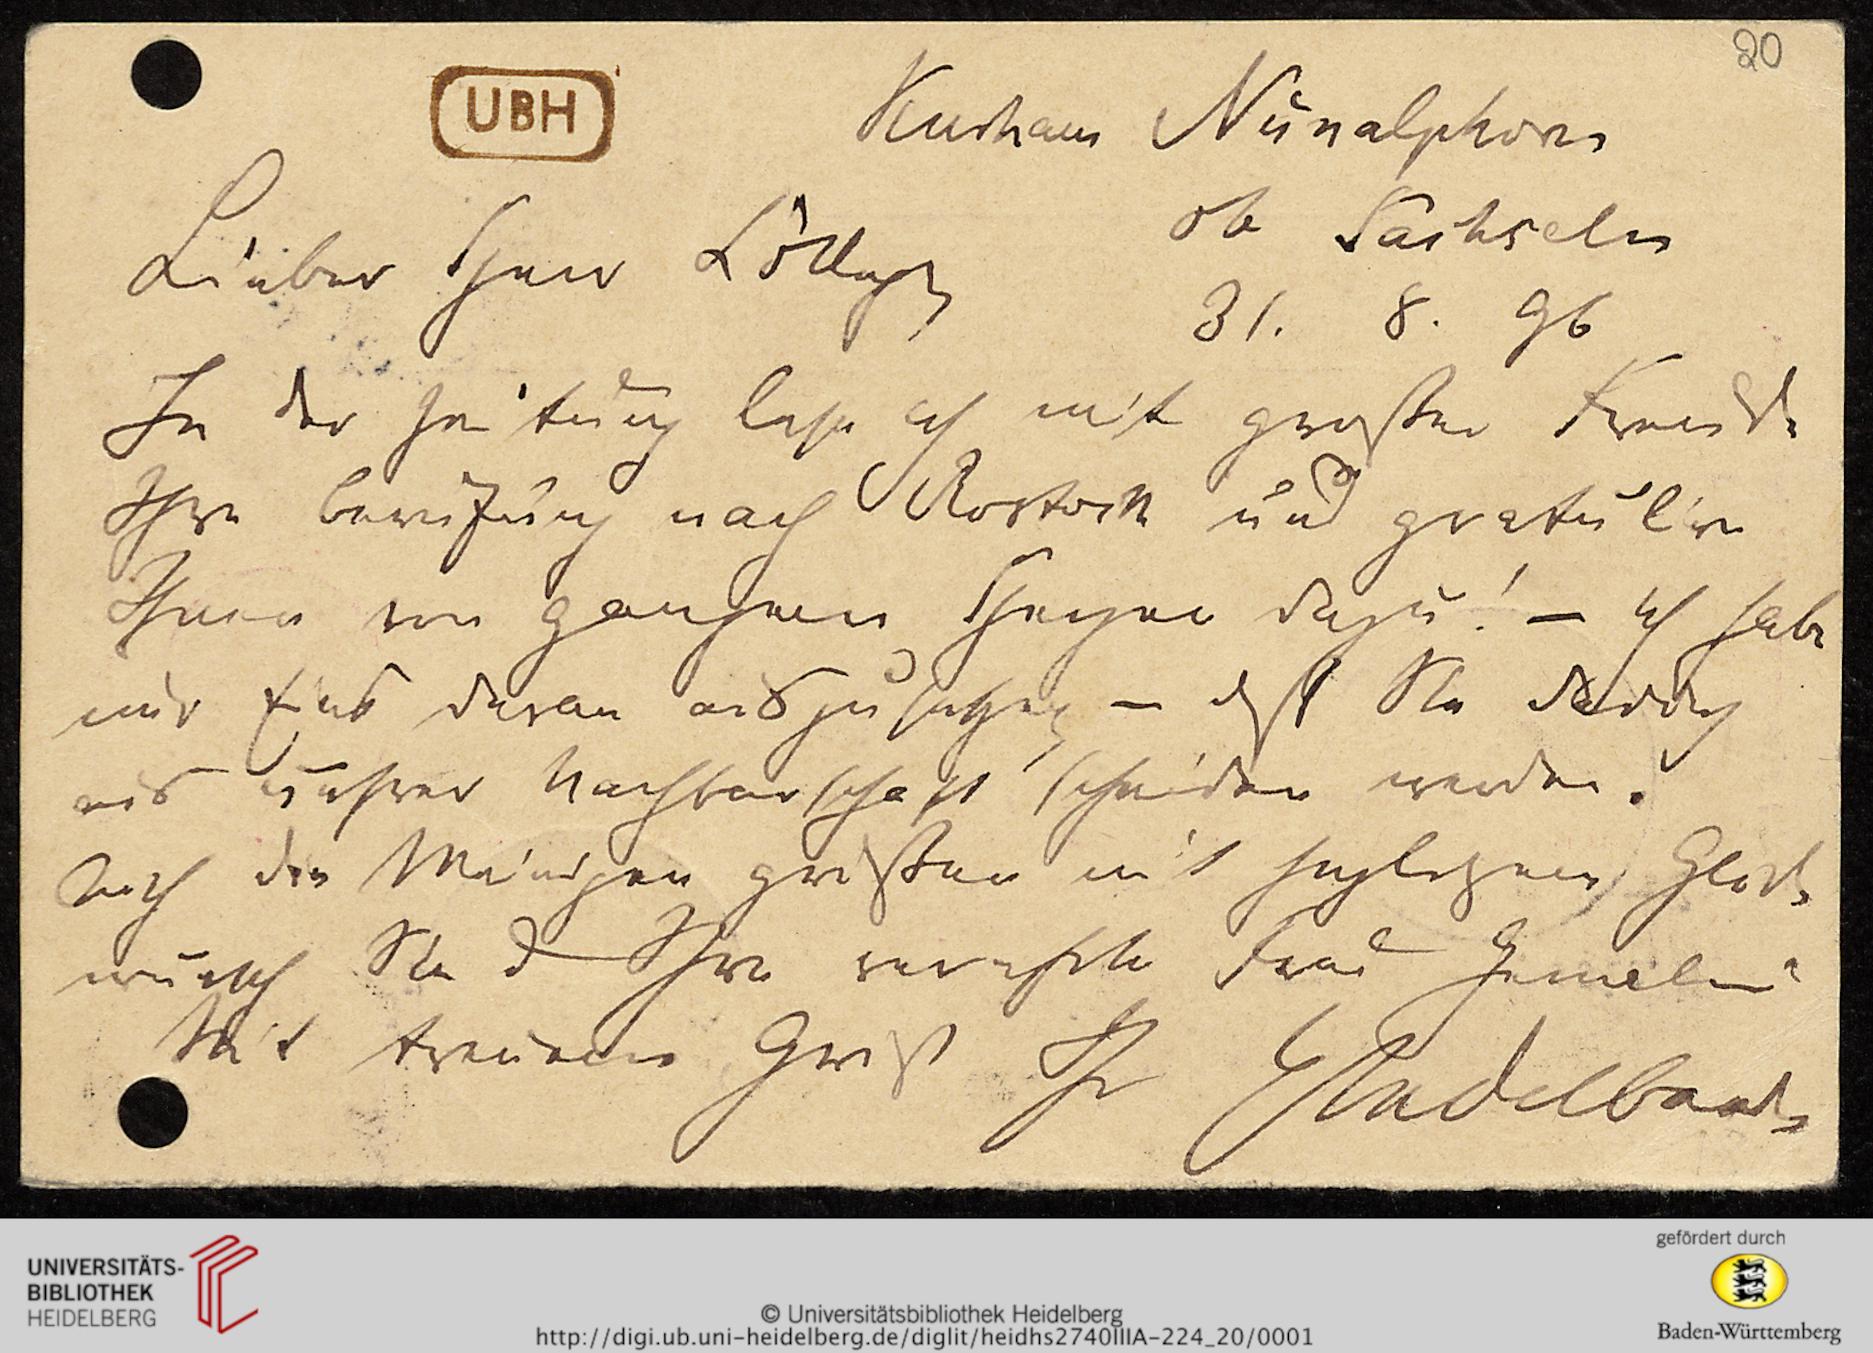 20
UBH
Kurhaus Nünalphorn
ob Sachseln
Lieber Herr College,
31. 8. 96
In der Zeitung lese ich mit großer Freude
Ihre Berufung nach Rostock und gratulire
Ihnen von ganzem Herzen dazu! – Ich habe
nur Eins daran auszusetzen – daß Sie dadurch
aus unsrer Nachbarschaft scheiden werden.
Auch die Meinigen grüßen mit herzlichem Glück-
wunsch Sie u Ihre verehrte Frau Gemahlin
Mit treuem Gruß Ihr Windelband
UNIVERSITÄTS-
BIBLIOTHEK
HEIDELBERG
© Universitätsbibliothek Heidelberg
http://digi.ub.uni-heidelberg.de/diglit/heidhs2740IIIA-224_20/0001
gefördert durch
Baden-Württemberg